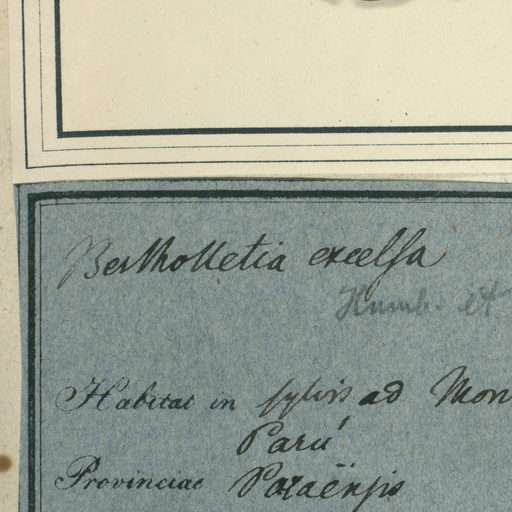 Bertholletia excelsa
Humb. et
Habitat in sylvis ad Mon
Parú
Provinciae Paraënsis